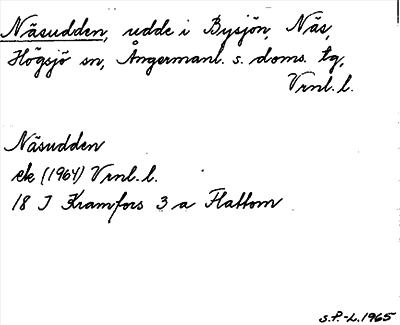 Näsudden, udde i Bysjön, Näs,
Högsjö sn, Ångermanl. s. doms. tg,
Vrnl. l.
Näsudden
ek (1964) Vrnl. l.
18 I Kramfors 3 a Flattom
S.P.-L. 1965